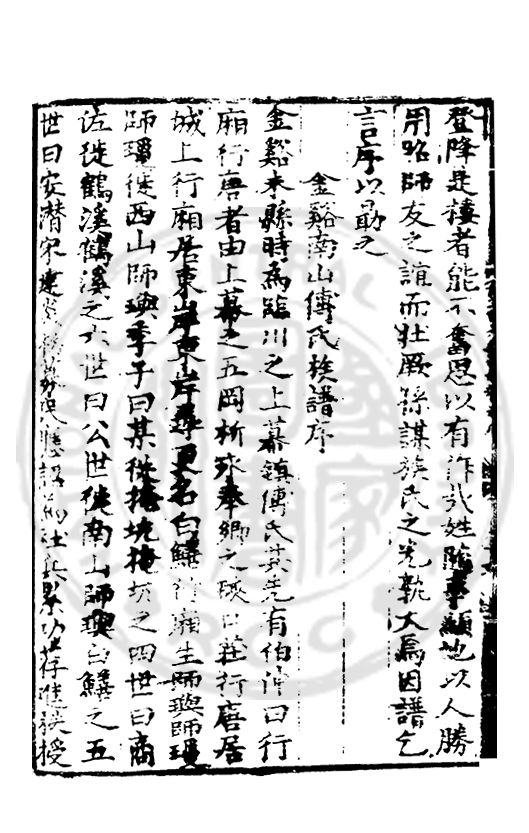 登降是樓者能不奮思以有許哉姓隨事顯地以人勝
用昭師友之誼而壯厥孫謀族氏之光孰大焉因譜乞
言序以勗之
金谿南山傅氏族譜序
金谿未縣時為臨川之上幕鎮傅氏其先有伯仲曰行
廂行唐者由上幕之五岡析珠奉卿之 莊行唐居
城上行廂居東岸東岸尋更名白鱔行廂生師璵師
師 徙西山師璵季子曰某徙掩坑掩坑之四世曰商
佐徙鶴溪鶴溪之六世曰公世徙南山師璵白鱔之五
世曰安潛宋建炎 應詔 社兵累功 授